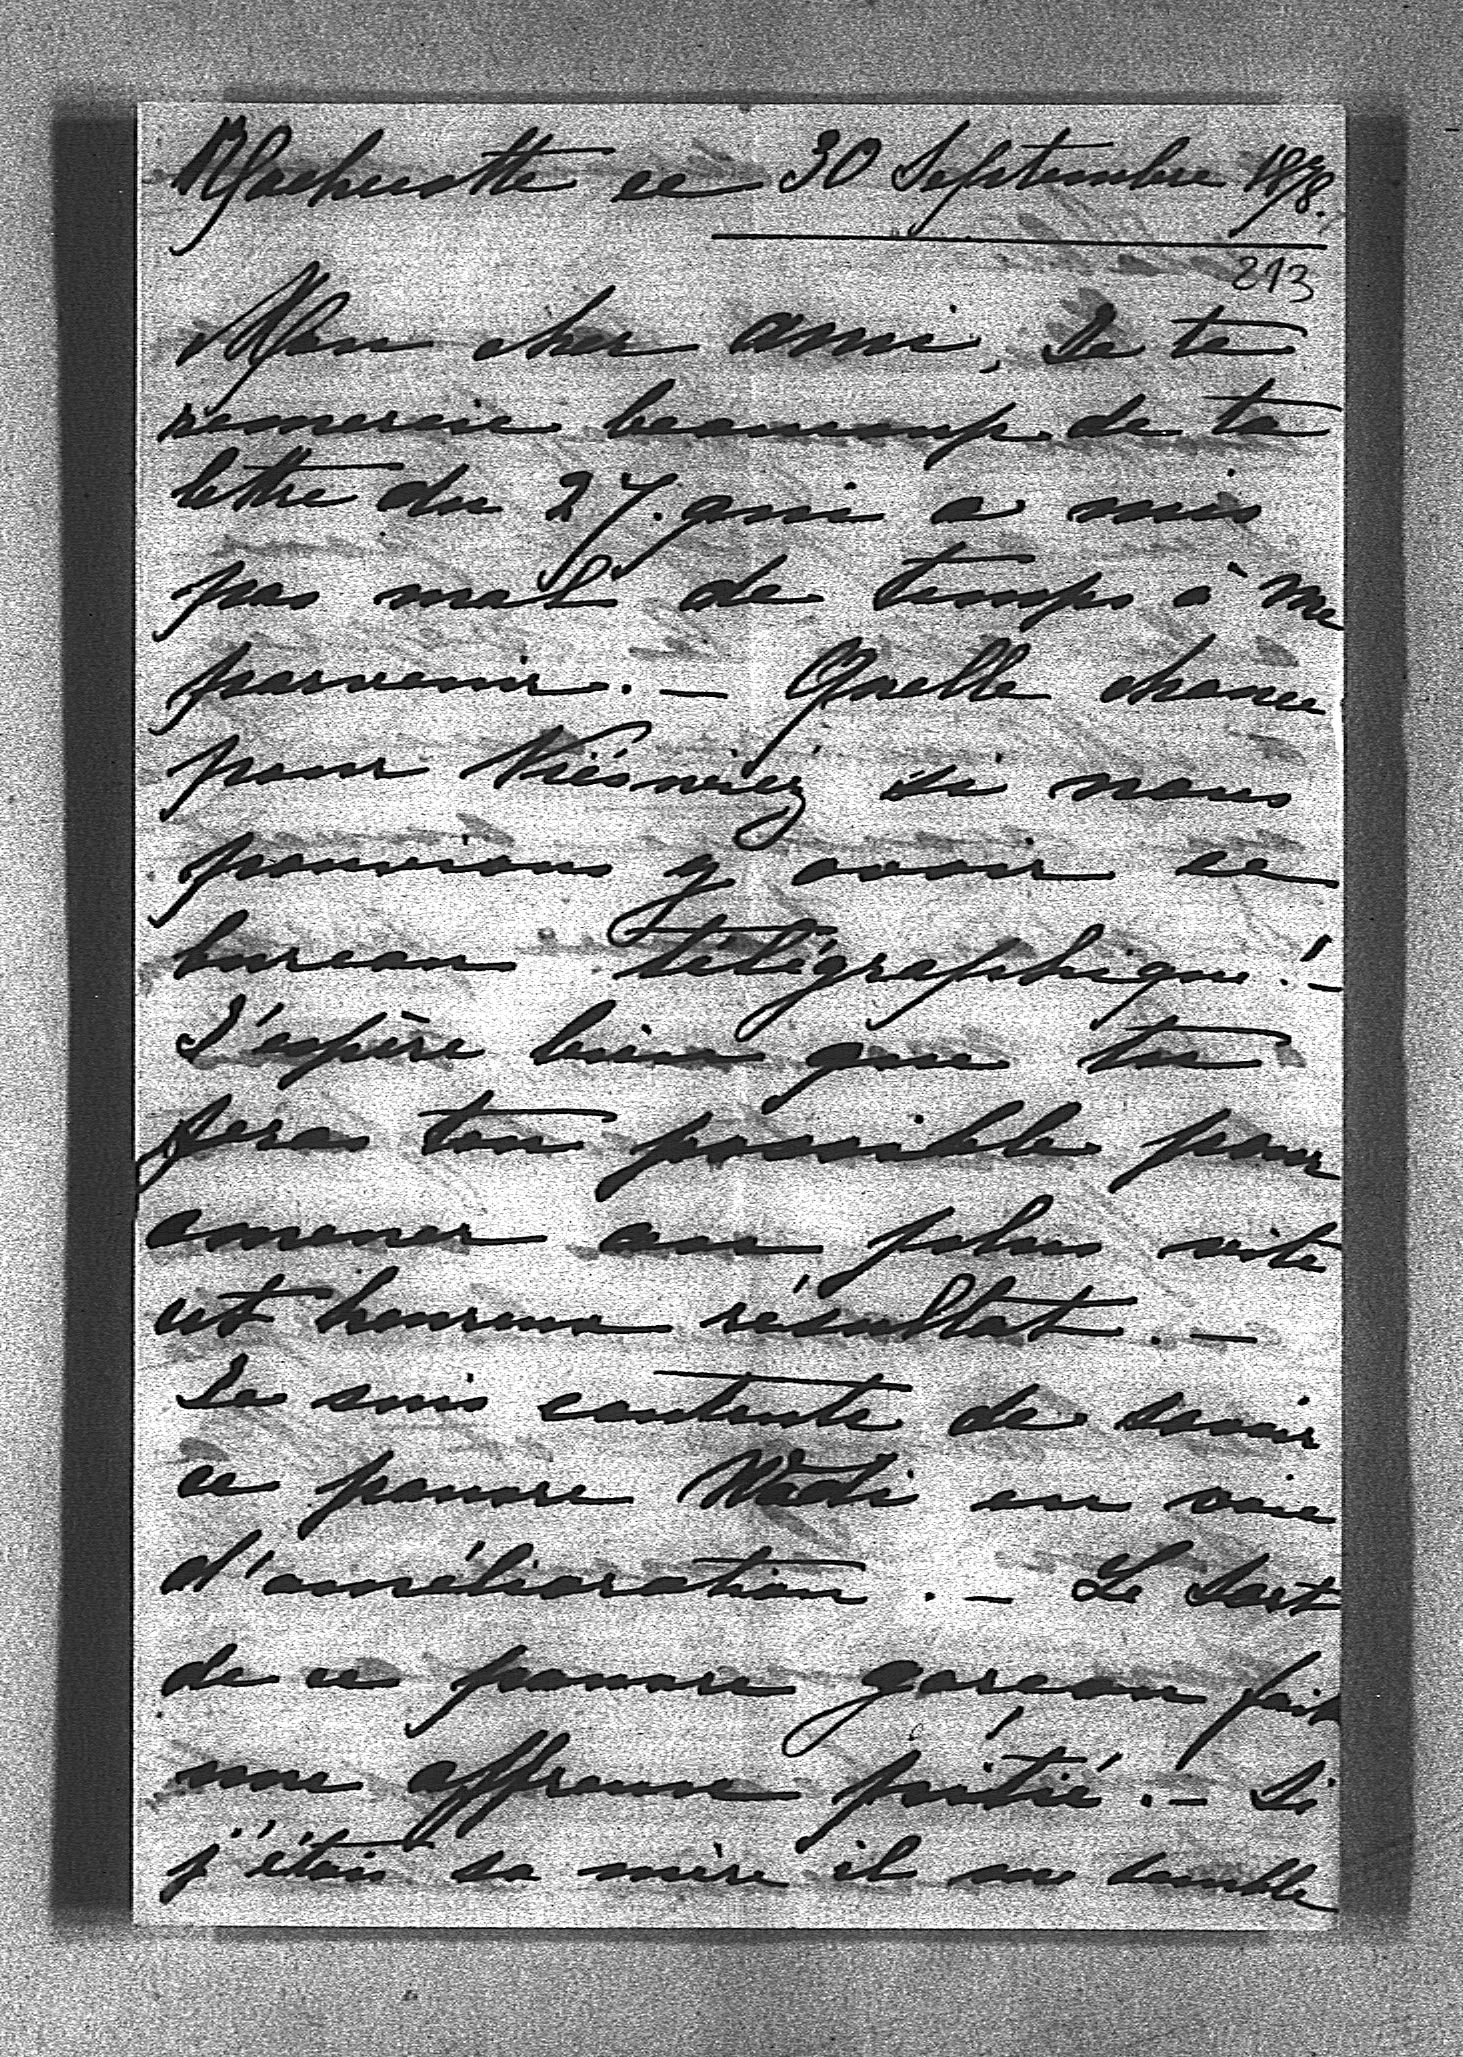 ce 30 Septembre 1878.
213
Mon cher ami, Je te
remercie beaucoup de ta
lettre du 27. qui a mis
pas mal de temps à me
parvenir. — Quelle chance
pour si nous
pouvions y avoir ce
bureau télégraphique! —
J'espère bien que tu
feras ton possible pour
amener au plus vite
cet heureux résultat. —
Je suis contente de savoir
ce pauvre Wadi en voie
d'amélioration. — Le sort
de ce pauvre garçon fait
une affreuse pitié. — Si
j'étais sa mère il me semble